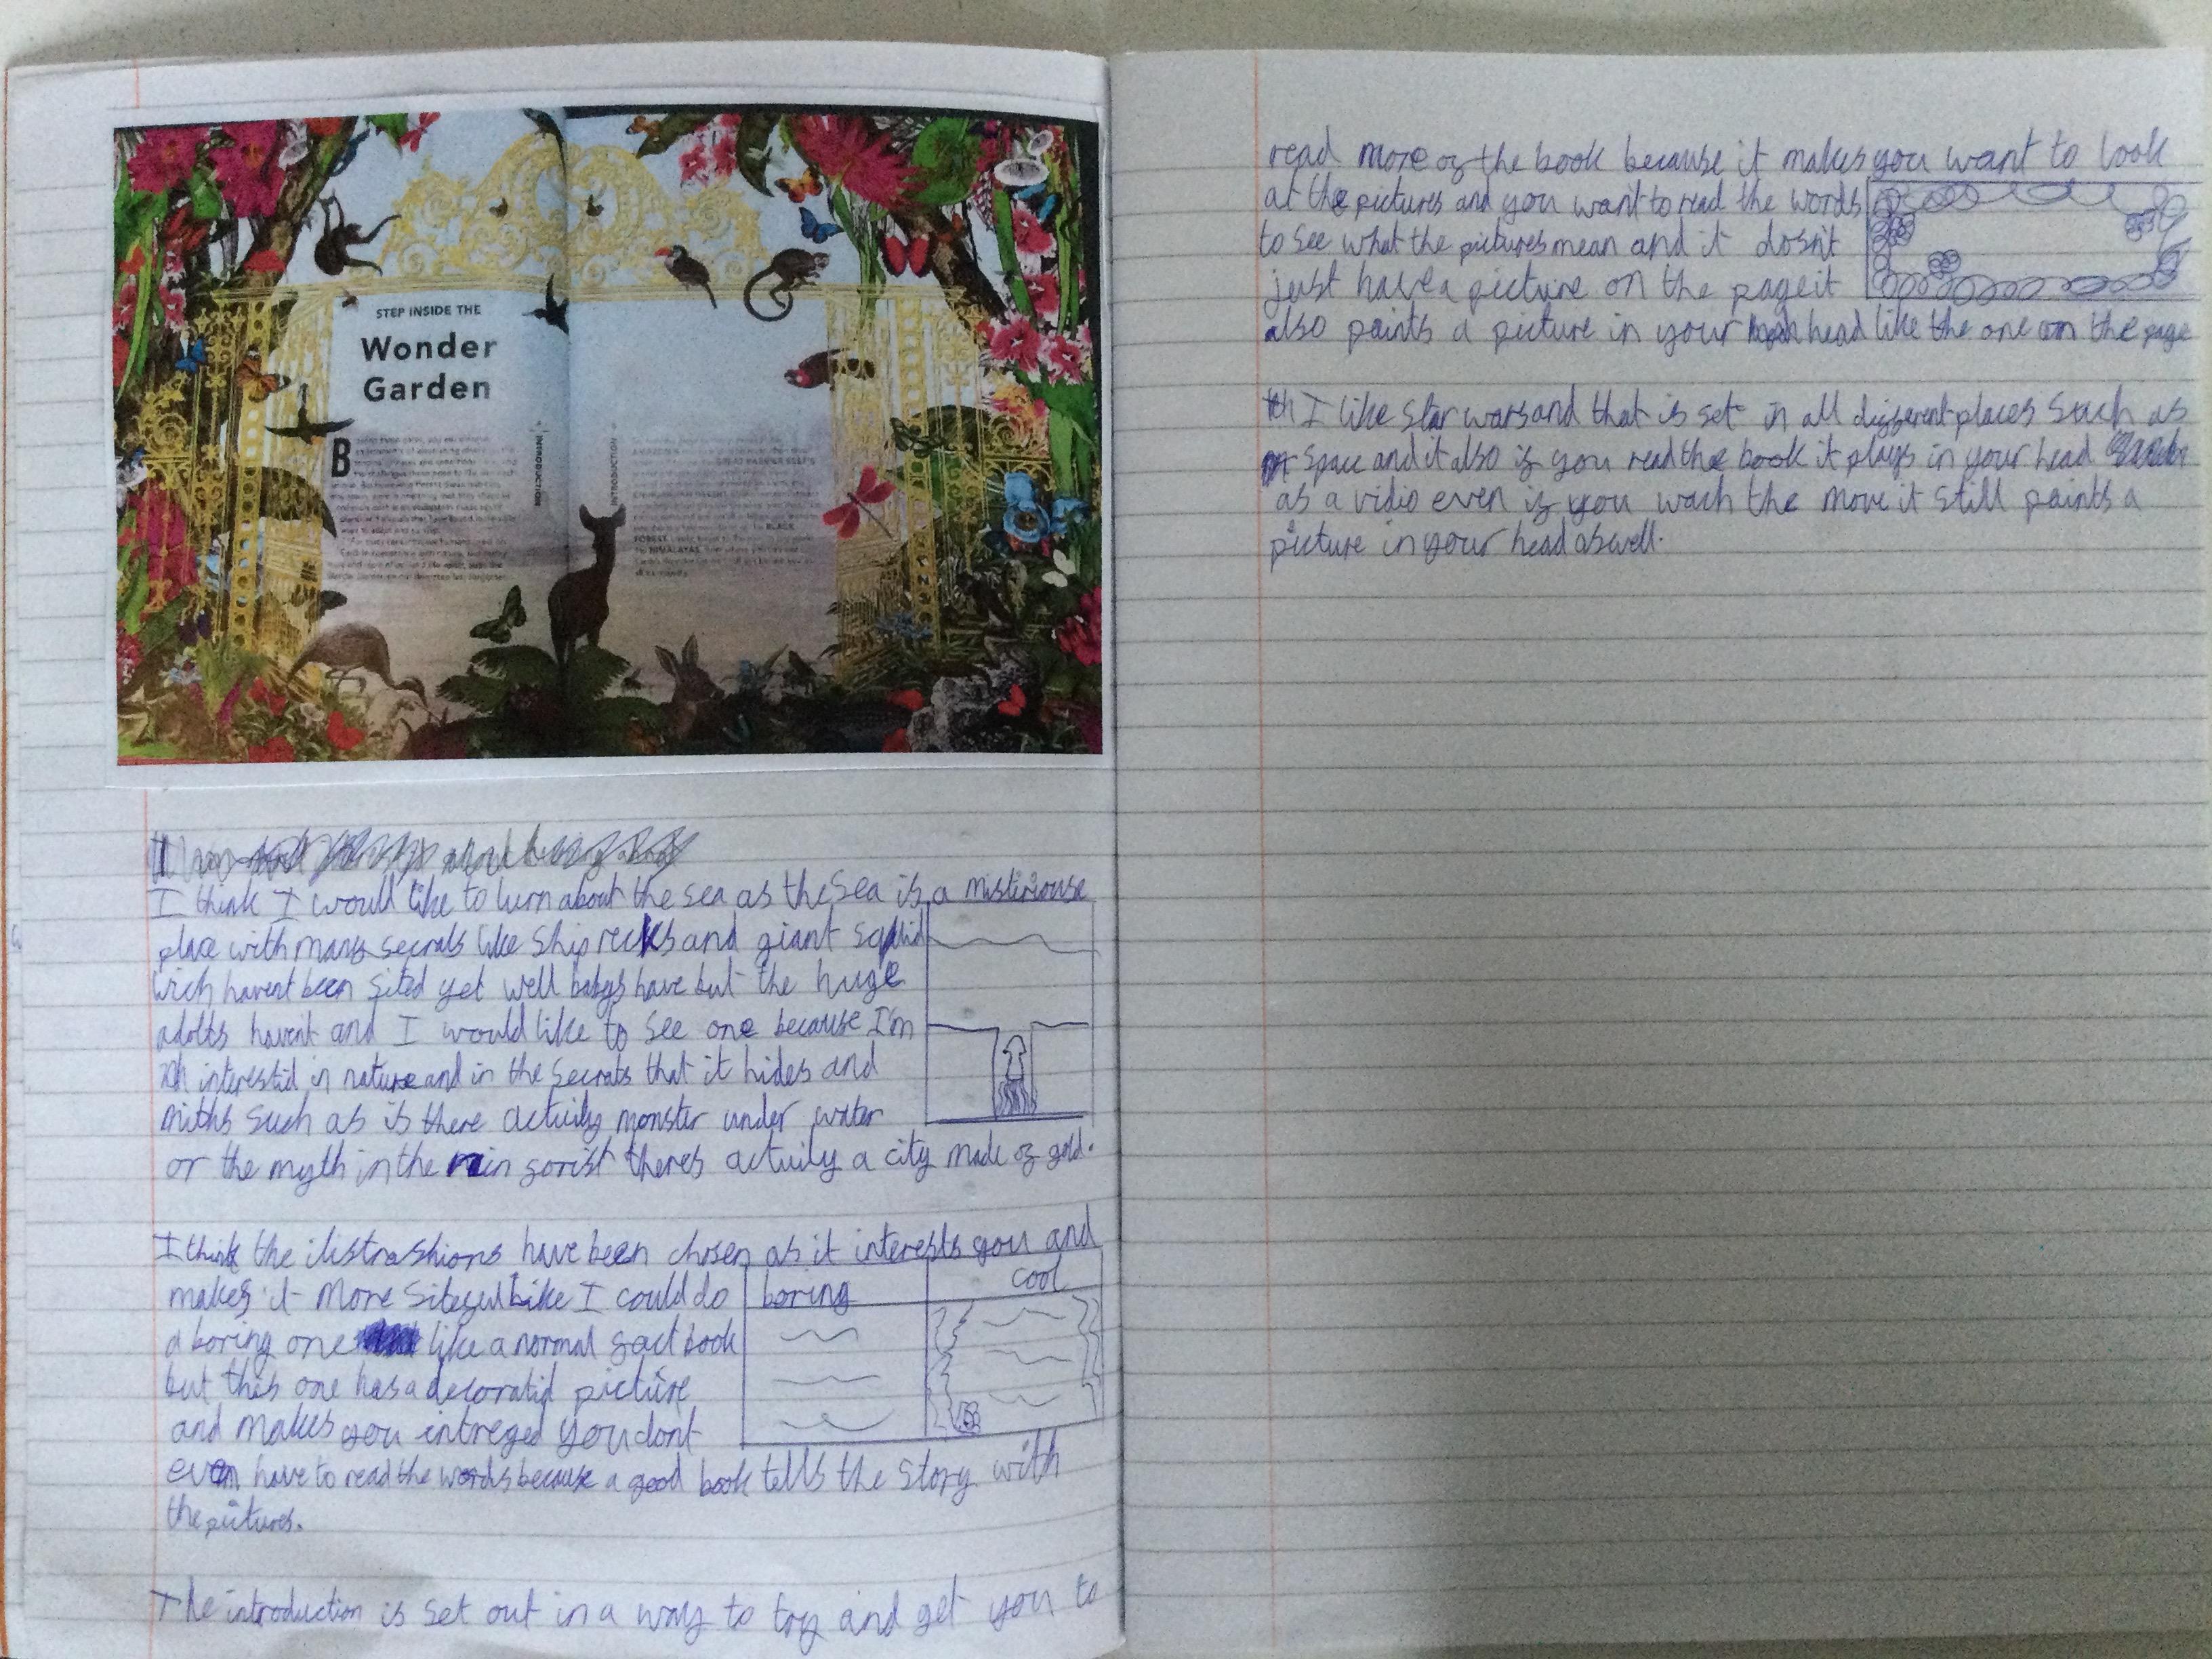 STEP INSIDE THE
Wonder
Garden
B
INTRODUCTION
INTRODUCTION
BLACK
FOREST
HIMALAYAS
I think I would like to lurn about the sea as the sea is a misteriouse
place with many secrats like shiprecks and giant squid
wich havent been sited yet well babys have but the huge
adolts havent and I would like to see one because I'm
interestid in nature and in the secrats that it hides and
miths such as is there actuily monster under water
or the myth in the rain forist theres actuily a city made of gold.
I think the ilistrashions have been chosen as it interests you and
makes it more Like I could do
a boring one like a normal fact book
but this one has a decoratid picture
and makes you intreged you dont
even have to read the words because a good book tells the story with
the pictures.
boring
cool
The introduction is set out in a way to try and get you to
read more of the book because it makes you want to look
at the pictures and you want to read the words
to see what the pictures mean and it dosn't
just have a picture on the page it
also paints a picture in your head like the one on the page
I like star wars and that is set in all different places such as
space and it also if you read the book it plays in your head
as a vidio even if you wach the move it still paints a
picture in your head aswell.